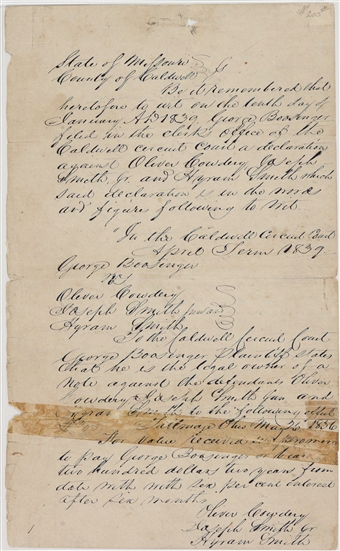 $200
State of Missouri
County of Caldwell
Be it remembered that
heretofore to wit on the tenth day of
January AD 1839, George Boosinger
filed in the clerks office of the
Caldwell circuit court a declaration
against Oliver Cowdery Joseph
Smith Jr. and Hyram Smith which
said declaration is in the words
and figures following to wit
"In the Caldwell Circuit Court
April Term 1839.
George Boosinger
vs
Oliver Cowdery
Joseph Smith Junior
Hyram Smith
To the Caldwell Circuit Court
George Boosinger Plaintiff states
that he is the legal owner of a
Note against the defendants Oliver
Cowdery Joseph Smith Jun and
Hyram Smith to the following effect
Ohio May 26 1836
For value received I promise
to pay George Boosinger or bearer
two hundred dollars two years from
date with with six per cent interest
after six months
Oliver Cowdery
Joseph Smith Jr
Hyram Smith